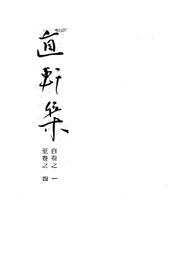 直軒集
自卷之一
至卷之四